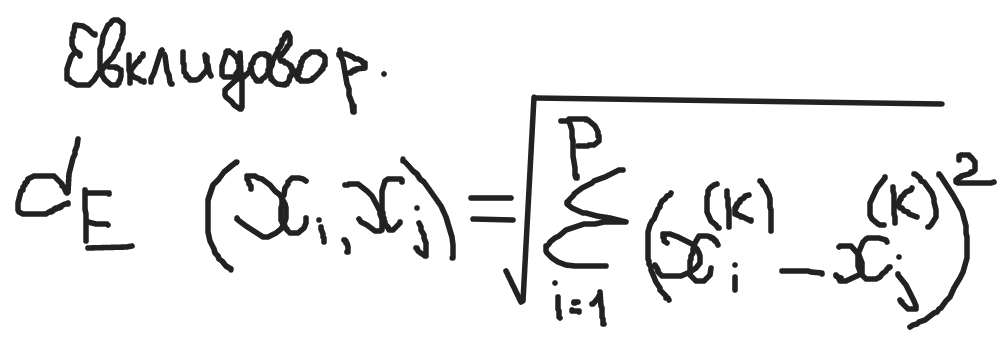 Евклидово р.
d_E (x_i, x_j) = √(∑_{i=1}^{P} (x_i^{(к)} - x_j^{(к)})^2)